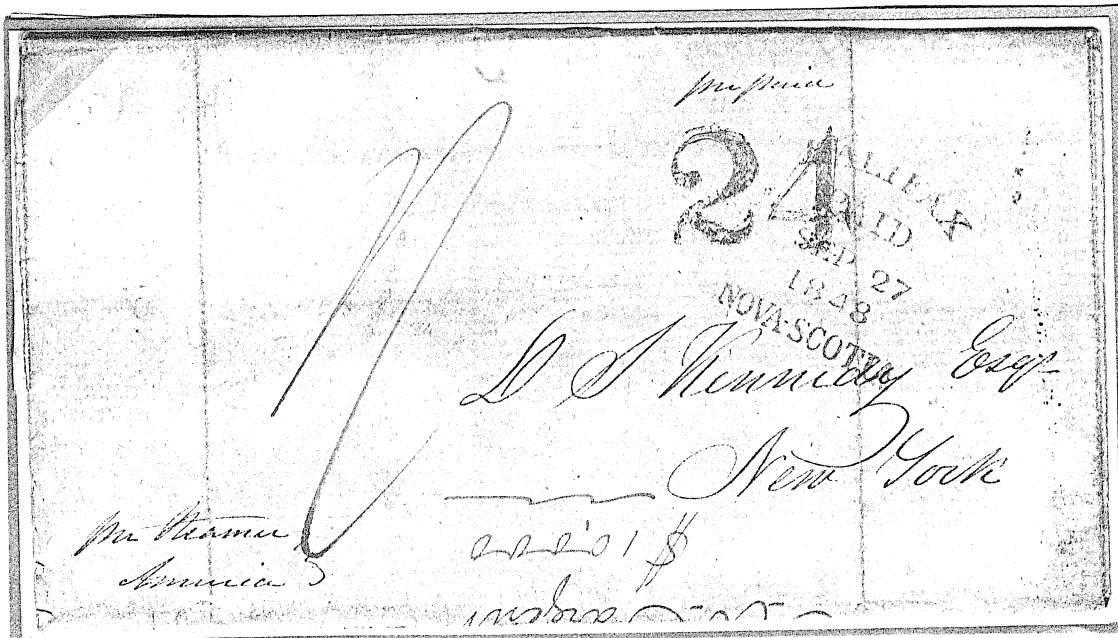 prepaid
24
HALIFAX
PAID
SEP 27
1848
NOVA-SCOTIA
D S Kennedy Esqr
New York
per Steamer
America